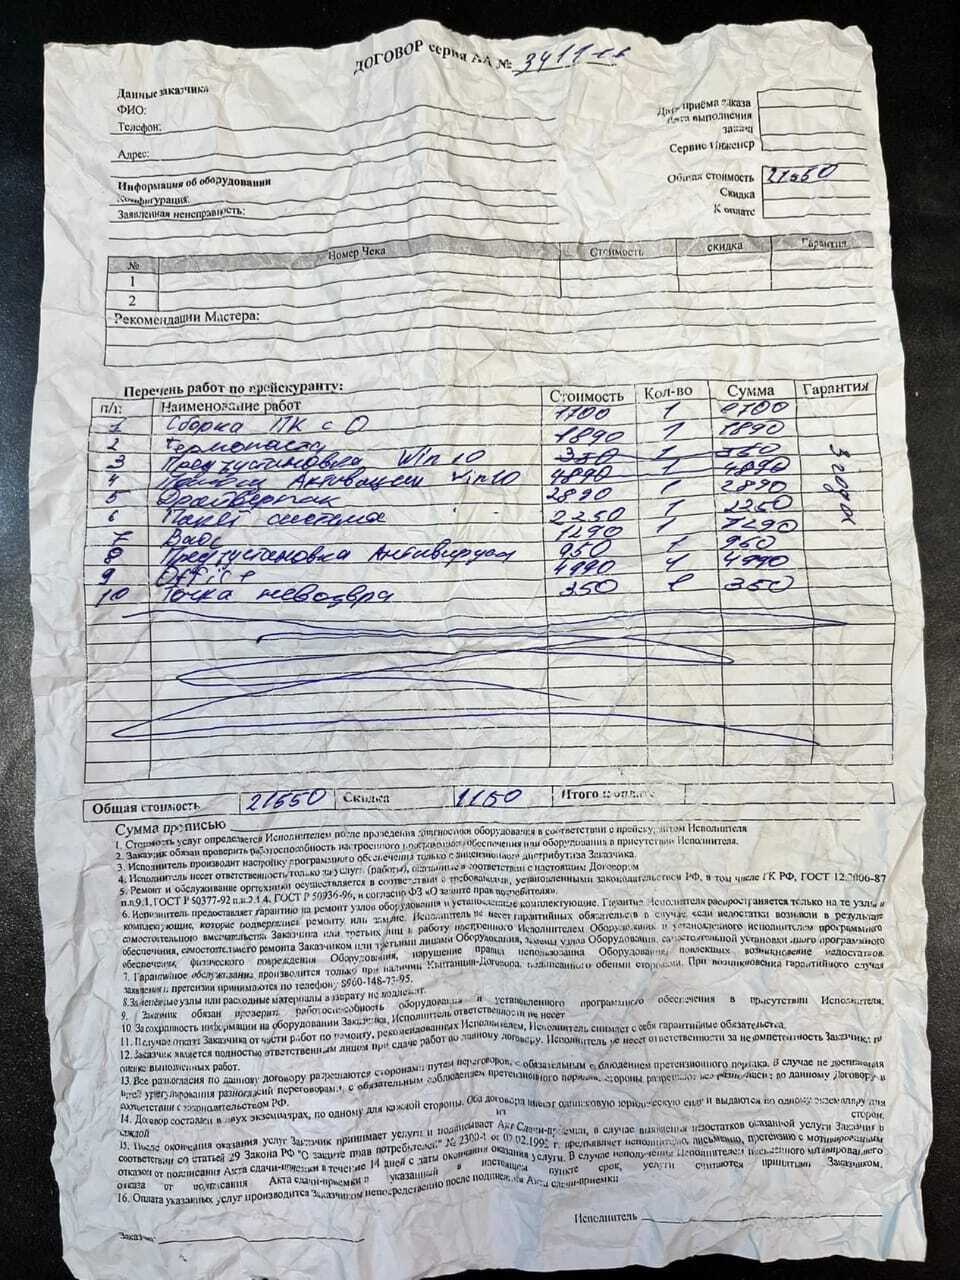 ДОГОВОР серия АА №
Данные заказчика
ФИО:
Телефон:
Адрес:
Дата приёма заказа
Дата выполнения
заказа
Сервис Инженер
Информация об оборудовании
Конфигурация:
Заявленная неисправность:
Общая стоимость 21550
Скидка
К оплате
№ Номер Чека Стоимость скидка Гарантия
1
2
Рекомендации Мастера:
Перечень работ по прейскуранту:
п/п Наименование работ Стоимость Кол-во Сумма Гарантия
1 Сборка ПК с О 1700 1 1700
2 Термопаста 1890 1 1890
3 Предустановка Win 10 350 1 350
4 Активации Win10 4890 1 4890
5 Драйверпак 2890 1 2890
6 Пакет система 2250 1 2250
7 1290 1 1290
8 Предустановка Антивируса 950 1 950
9 Office 4990 1 4990
10 Точка невозвра 350 1 350
3 года
Общая стоимость 21550 Скидка 1150 Итого к оплате
Сумма прописью
1. Стоимость услуг определяется Исполнителем после проведения диагностики оборудования в соответствии с прейскурантом Исполнителя
2. Заказчик обязан проверить работоспособность настроенного программного обеспечения или оборудования в присутствии Исполнителя.
3. Исполнитель производит настройку программного обеспечения только с лицензионного дистрибутива Заказчика.
4. Исполнитель несет ответственность только за услуги (работы), оказанные в соответствии с настоящим Договором
5. Ремонт и обслуживание оргтехники осуществляется в соответствии с требованиями, установленными законодательством РФ, в том числе ГК РФ, ГОСТ 12.2006-87
п.п.9.1, ГОСТ Р 50377-92 п.п.2.1.4, ГОСТ Р 50936-96, и согласно ФЗ «О защите прав потребителя».
6. Исполнитель предоставляет гарантию на ремонт узлов оборудования и установленные комплектующие. Гарантия Исполнителя распространяется только на те узлы и
комплектующие, которые подверглись ремонту или замене. Исполнитель не несет гарантийных обязательств в случае если недостатки возникли в результате
самостоятельного вмешательства Заказчика или третьих лиц в работу настроенного Исполнителем Оборудования и установленного исполнителем программного
обеспечения, самостоятельного ремонта Заказчиком или третьими лицами Оборудования, замены узлов Оборудования, самостоятельной установки иного программного
обеспечения, физического повреждения Оборудования, нарушение правил использования Оборудования, повлекших возникновение недостатков.
7. Гарантийное обслуживание производится только при наличии Квитанции-Договора, подписанного обеими сторонами. При возникновении гарантийного случая
заявления и претензии принимаются по телефону 8960-148-73-95.
8.Заменённые узлы или расходные материалы возврату не подлежат.
9. Заказчик обязан проверить работоспособность оборудования и установленного программного обеспечения в присутствии Исполнителя.
10. За сохранность информации на оборудовании Заказчика, Исполнитель ответственности не несет
11. Получив отказ Заказчика от части работ по ремонту, рекомендованных Исполнителем, Исполнитель снимает с себя гарантийные обязательства.
12. Заказчик является полностью ответственным лицом при сдаче работ по данному договору. Исполнитель не несет ответственности за некомпетентность Заказчика при
оценке выполненных работ.
13. Все разногласия по данному договору разрешаются сторонами путем переговоров с обязательным соблюдением претензионного порядка. В случае не достижения
урегулирования разногласий переговорами, с обязательным соблюдением претензионного порядка, стороны разрешают все разногласия по данному Договору в
соответствии с законодательством РФ.
14. Договор составлен в двух экземплярах, по одному для каждой стороны. Оба договора имеют одинаковую юридическую силу и выдаются по одному экземпляру для
каждой из сторон.
15. После окончания оказания услуг Заказчик принимает услуги и подписывает Акт Сдачи-приемки, в случае выявления недостатков оказанной услуги Заказчик в
соответствии со статьей 29 Закона РФ "О защите прав потребителей" № 2300-1 от 07.02.1992 г. предъявляет исполнителю, письменно, претензию с мотивированным
отказом от подписания Акта сдачи-приемки в течение 14 дней с даты окончания оказания услуги. В случае неполучения Исполнителем письменного мотивированного
отказа от подписания Акта сдачи-приемки в указанный в настоящем пункте срок, услуги считаются принятыми Заказчиком.
16. Оплата указанных услуг производится Заказчиком непосредственно после подписания Акта сдачи-приемки
Исполнитель
Заказчик